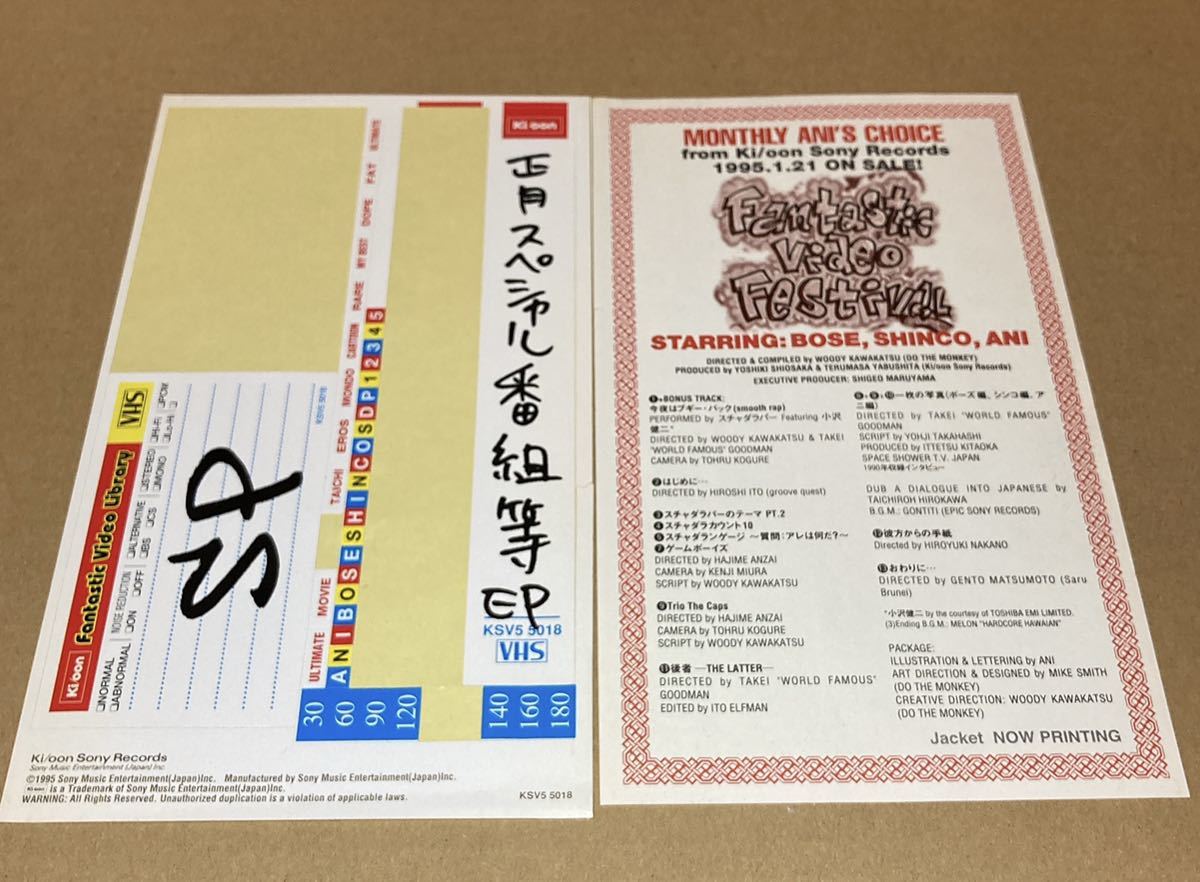 Ki/oon
Fantastic Video Library
VHS
□NORMAL
□ABNORMAL
NOISE REDUCTION
□ON □OFF
□ALTERNATIVE
□BS □CS
□STEREO
□MONO
□Hi-Fi □PCM
□Lo-Hi □
SP
KSV5 5018
ULTIMATE MOVIE TAICHI EROS MONDO CARTOON RARE MY BEST DOPE FAT ULTIMATE
ANIBOSESHINCOSDP12345
30
60
90
120
140
160
180
Ki/oon
正月スペシャル番組等
EP
KSV5 5018
VHS
Ki/oon Sony Records
Sony Music Entertainment (Japan) Inc.
©1995 Sony Music Entertainment(Japan)Inc. Manufactured by Sony Music Entertainment(Japan)Inc.
Ki/oon is a Trademark of Sony Music Entertainment(Japan)Inc.
WARNING: All Rights Reserved. Unauthorized duplication is a violation of applicable laws.
KSV5 5018
MONTHLY ANI'S CHOICE
from Ki/oon Sony Records
1995.1.21 ON SALE!
Fantastic
Video
Festival
STARRING: BOSE, SHINCO, ANI
DIRECTED & COMPILED by WOODY KAWAKATSU (DO THE MONKEY)
PRODUCED by YOSHIKI SHIOSAKA & TERUMASA YABUSHITA (Ki/oon Sony Records)
EXECUTIVE PRODUCER: SHIGEO MARUYAMA
❶+BONUS TRACK:
今夜はブギー・バック(smooth rap)
PERFORMED by スチャダラパー Featuring 小沢
健二*
DIRECTED by WOODY KAWAKATSU & TAKEI
"WORLD FAMOUS" GOODMAN
CAMERA by TOHRU KOGURE
❷はじめに…
DIRECTED by HIROSHI ITO (groove quest)
❸スチャダラパーのテーマ PT.2
❹スチャダラカウント10
❺スチャダランゲージ ～質問:アレは何だ?～
❼ゲームボーイズ
DIRECTED by HAJIME ANZAI
CAMERA by KENJI MIURA
SCRIPT by WOODY KAWAKATSU
❾Trio The Caps
DIRECTED by HAJIME ANZAI
CAMERA by TOHRU KOGURE
SCRIPT by WOODY KAWAKATSU
⓫後者 —THE LATTER—
DIRECTED by TAKEI "WORLD FAMOUS"
GOODMAN
EDITED by ITO ELFMAN
❻・❽・❿一枚の写真(ボーズ編、シンコ編、ア
ニ編)
DIRECTED by TAKEI "WORLD FAMOUS"
GOODMAN
SCRIPT by YOHJI TAKAHASHI
PRODUCED by ITTETSU KITAOKA
SPACE SHOWER T.V. JAPAN
1990年収録インタビュー
DUB A DIALOGUE INTO JAPANESE by
TAICHIROH HIROKAWA
B.G.M.: GONTITI (EPIC SONY RECORDS)
⓬彼方からの手紙
Directed by HIROYUKI NAKANO
⓭おわりに…
DIRECTED by GENTO MATSUMOTO (Saru
Brunei)
*小沢健二 by the courtesy of TOSHIBA EMI LIMITED.
(3)Ending B.G.M.: MELON "HARDCORE HAWAIAN"
PACKAGE:
ILLUSTRATION & LETTERING by ANI
ART DIRECTION & DESIGNED by MIKE SMITH
(DO THE MONKEY)
CREATIVE DIRECTION: WOODY KAWAKATSU
(DO THE MONKEY)
Jacket NOW PRINTING